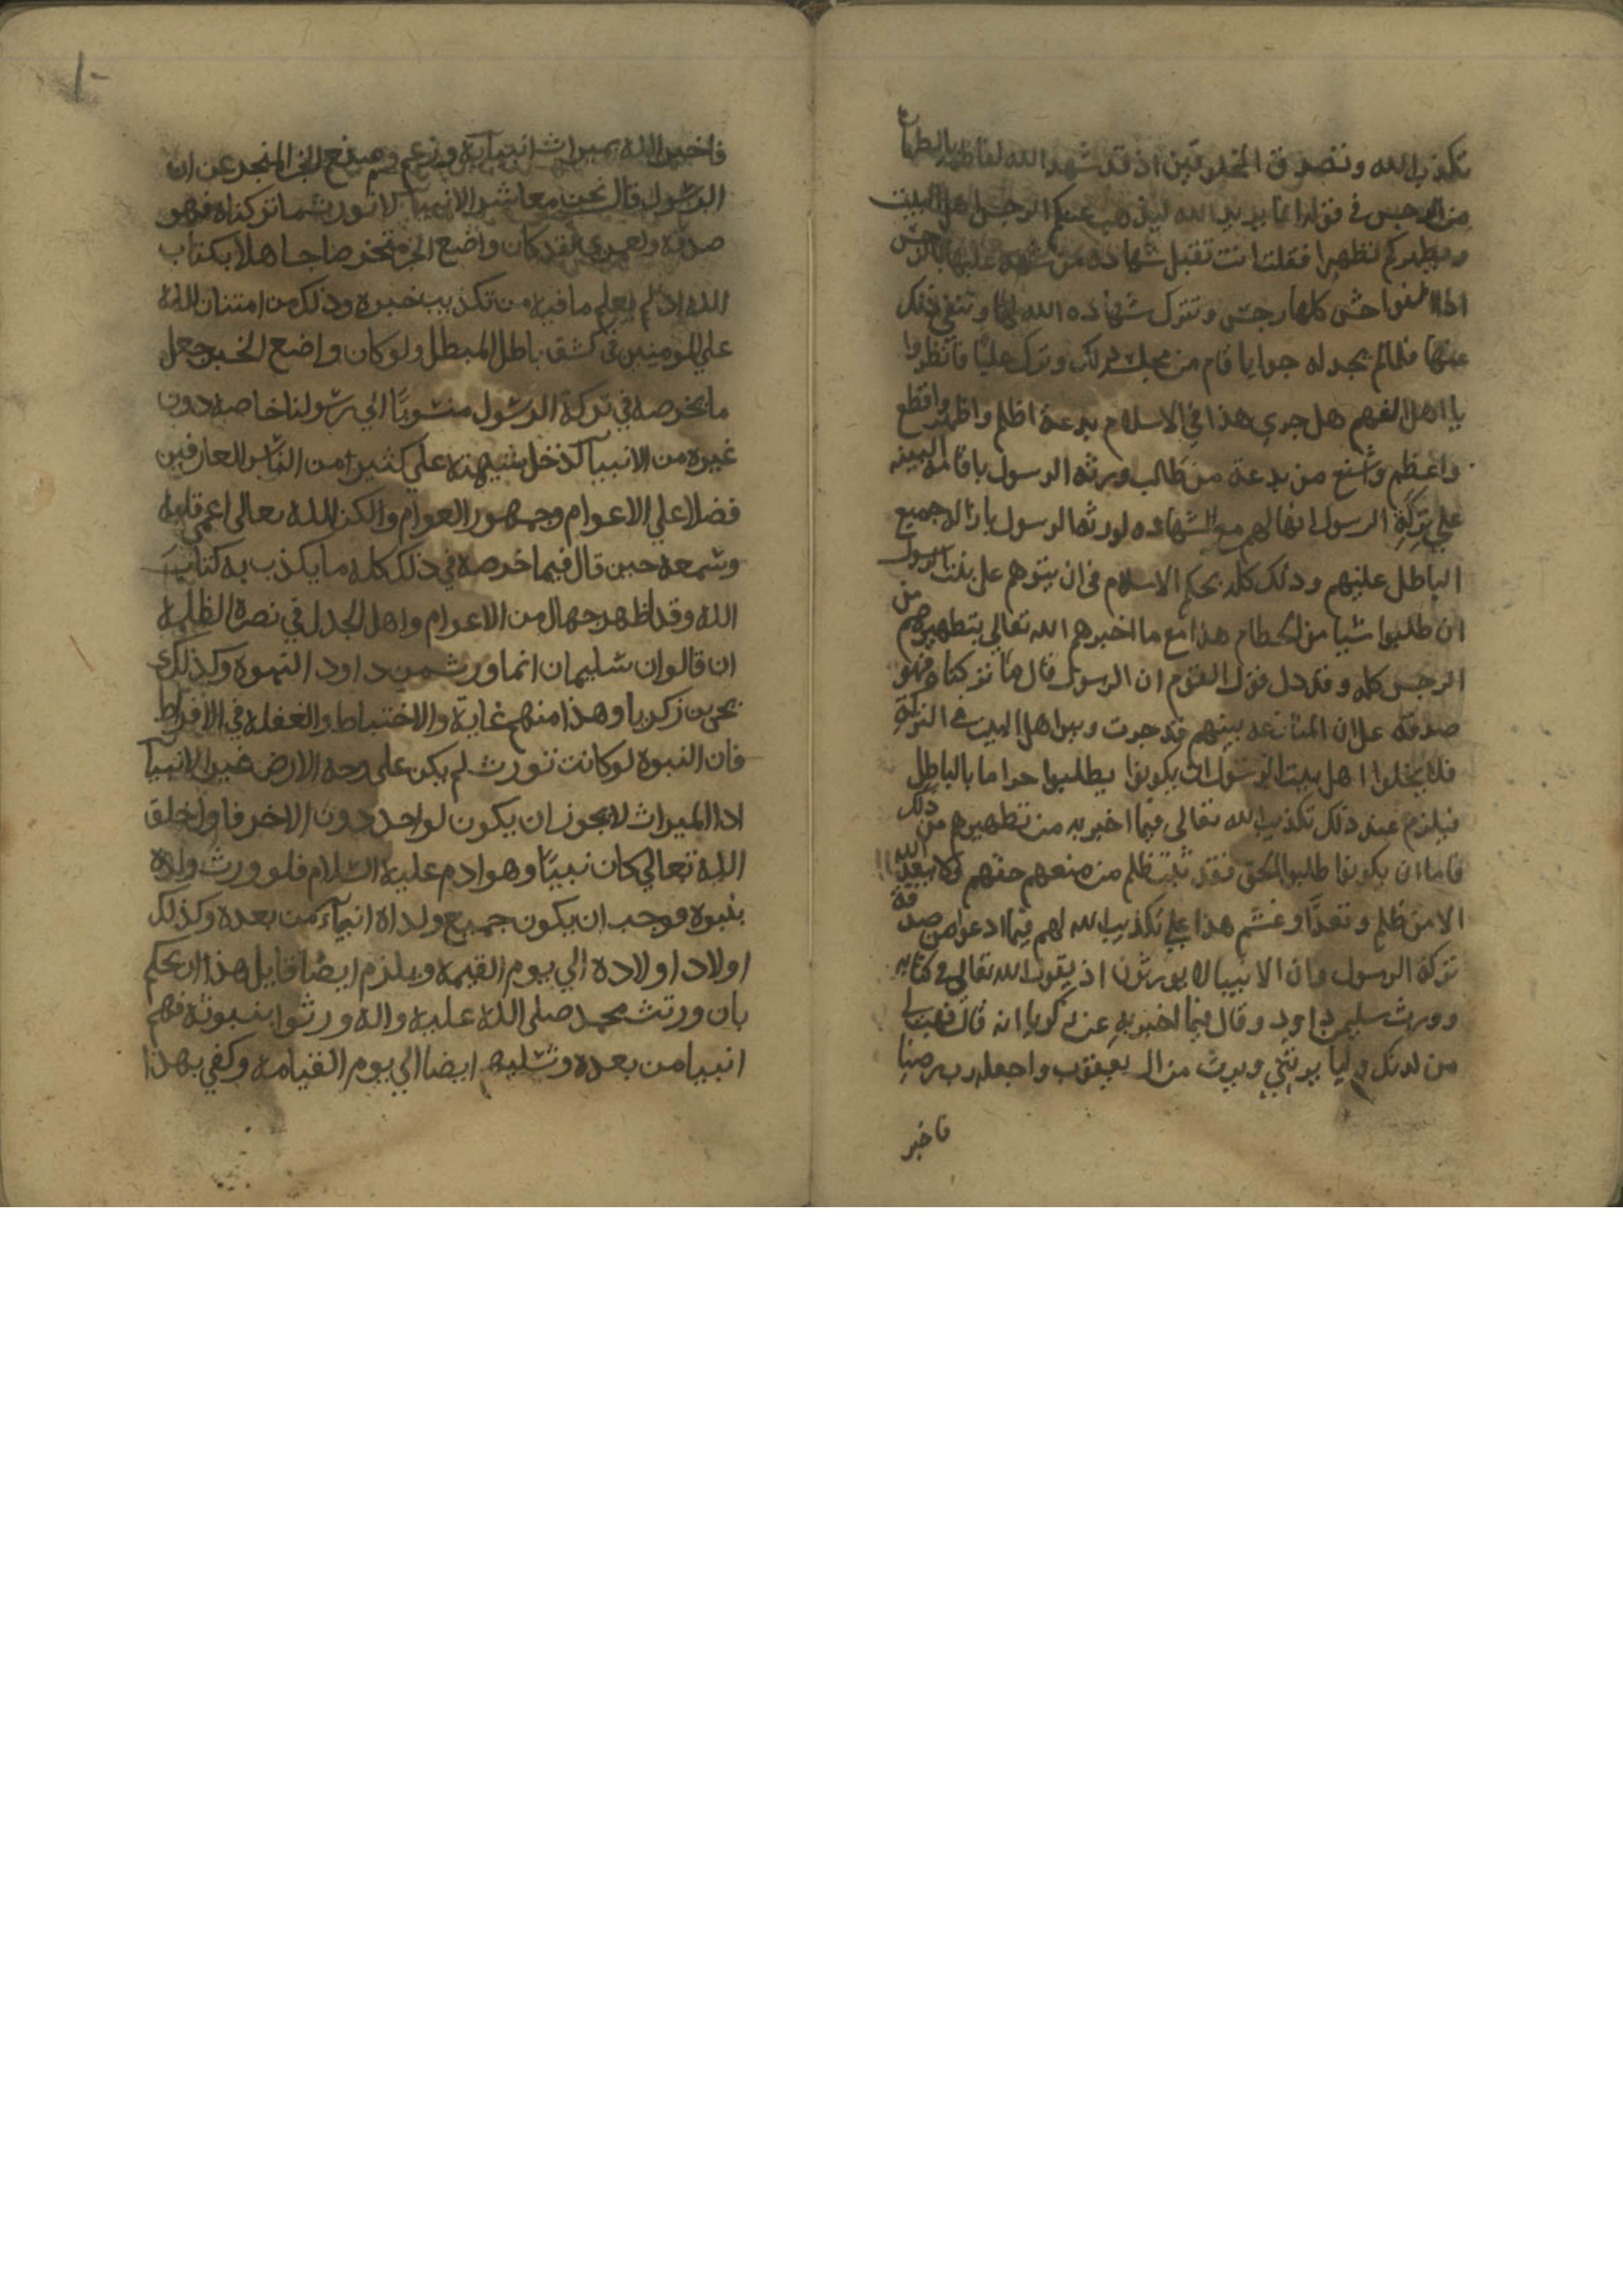 تكذب الله وتصدق المخلوقين اذ قد شهد الله لفاطمه بالطهاره
من الرجس في قوله انما يريد الله ليذهب عنكم الرجس اهل البيت
ويطهركم تطهيرا فقلت انت تقبل شهاده من شهد عليها بالرجس
اذ الفواحش كلها رجس وتترك شهاده الله لها وتنفي ذلك
عنها فلما لم يجد له جوابا قام من مجلسه ذلك وترك عليًا فانظروا
يا اهل الفهم هل جري هذا في الاسلام بدعة اظلم واظهر وافظع
واعظم واشنع من بدعة من طالب ورثه الرسول باقامه البينه
علي تركة الرسول انها لهم مع شهاده لورثه الرسول بازاله جميع
الباطل عليهم وذلك كله بحكم الاسلام في ان يتوهم علي بنت الرسول
ان طلبوا شيا من الحطام هذا مع ما اخبرهم الله تعالي بتطهيرهم من
الرجس كله وقد دل قول القوم ان الرسول قال ما تركناه فهو
صدقه علي ان المنازعه بينهم قد جرت وبين اهل البيت في التركة
فلا يخلوا اهل بيت الرسول ان يكونوا يطلبوا حراما بالباطل
فيلزم عند ذلك تكذيب الله تعالي فيما اخبر به من تطهيرهم من ذلك
فاما ان يكونوا طلبوا الحق فقد ثبت ظلم من منعهم حقهم ولا يبعد الله
الا من ظلم وتعدّا وغشم هذا علي تكذيب الله لهم فيما ادعوا من صدقة
تركة الرسول وان الانبيا لا يورثون اذ يقول الله تعالي في كتابه
وورث سليمن داود وقال فيما اخبر به عن زكريا انه قال فهب لي
من لدنك وليا يرثني ويرث من ال يعقوب واجعله رب رضيا
فاخبر
١٠
فاخبر الله بميراث انبيآيه وزعم وضع الخبر المنجد عن ان
الرسول قال نحن معاشر الانبيآ لا نورث ما تركناه فهو
صدقه ولعمري لقد كان واضع الخبر متخرضا جاهلا بكتاب
الله اذ لم يعلم ما فيه من تكذيب خبره وذلك من امتنان الله
علي المومنين في كشف باطل المبطل ولو كان واضع الخبر جعل
ما تخرصه في تركة الرسول منسوبًا الي رسولنا خاصه دون
غيره من الانبيآ لدخل شبهته علي كثير من الناس العارفين
فضلا علي الاعوام وجمهور العوام والكن الله تعالى اعمى قلبه
وسمعه حين قال فيما خرصه في ذلك كله ما يكذب به كتاب
الله وقد اظهر جهال من الاعوام واهل الجدل في نصرة الظلمه
ان قالو ان سليمان انما ورث من داود النبوه وكذلك
يحي بن زكريا وهذا منهم غاية والاختباط والغفله في الافراط
فان النبوه لو كانت تورث لم يكن على وجه الارض غير الانبيآ
اذ الميراث لا يجوز ان يكون لواحد دون الاخر فاول خلق
الله تعالي كان نبيّا وهو ادم عليه السلام فلو ورث ولده
بنبوه فوجب ان يكون جميع ولده انبيآء من بعده وكذلك
اولاد اولاده الي يوم القيمه ويلزم ايضا قايل هذا ان يحكم
بان ورثت محمد صلى الله عليه واله ورثوا بنبوته فهم
انبيا من بعده ونسليهم ايضا الي يوم القيامه وكفي بهذا